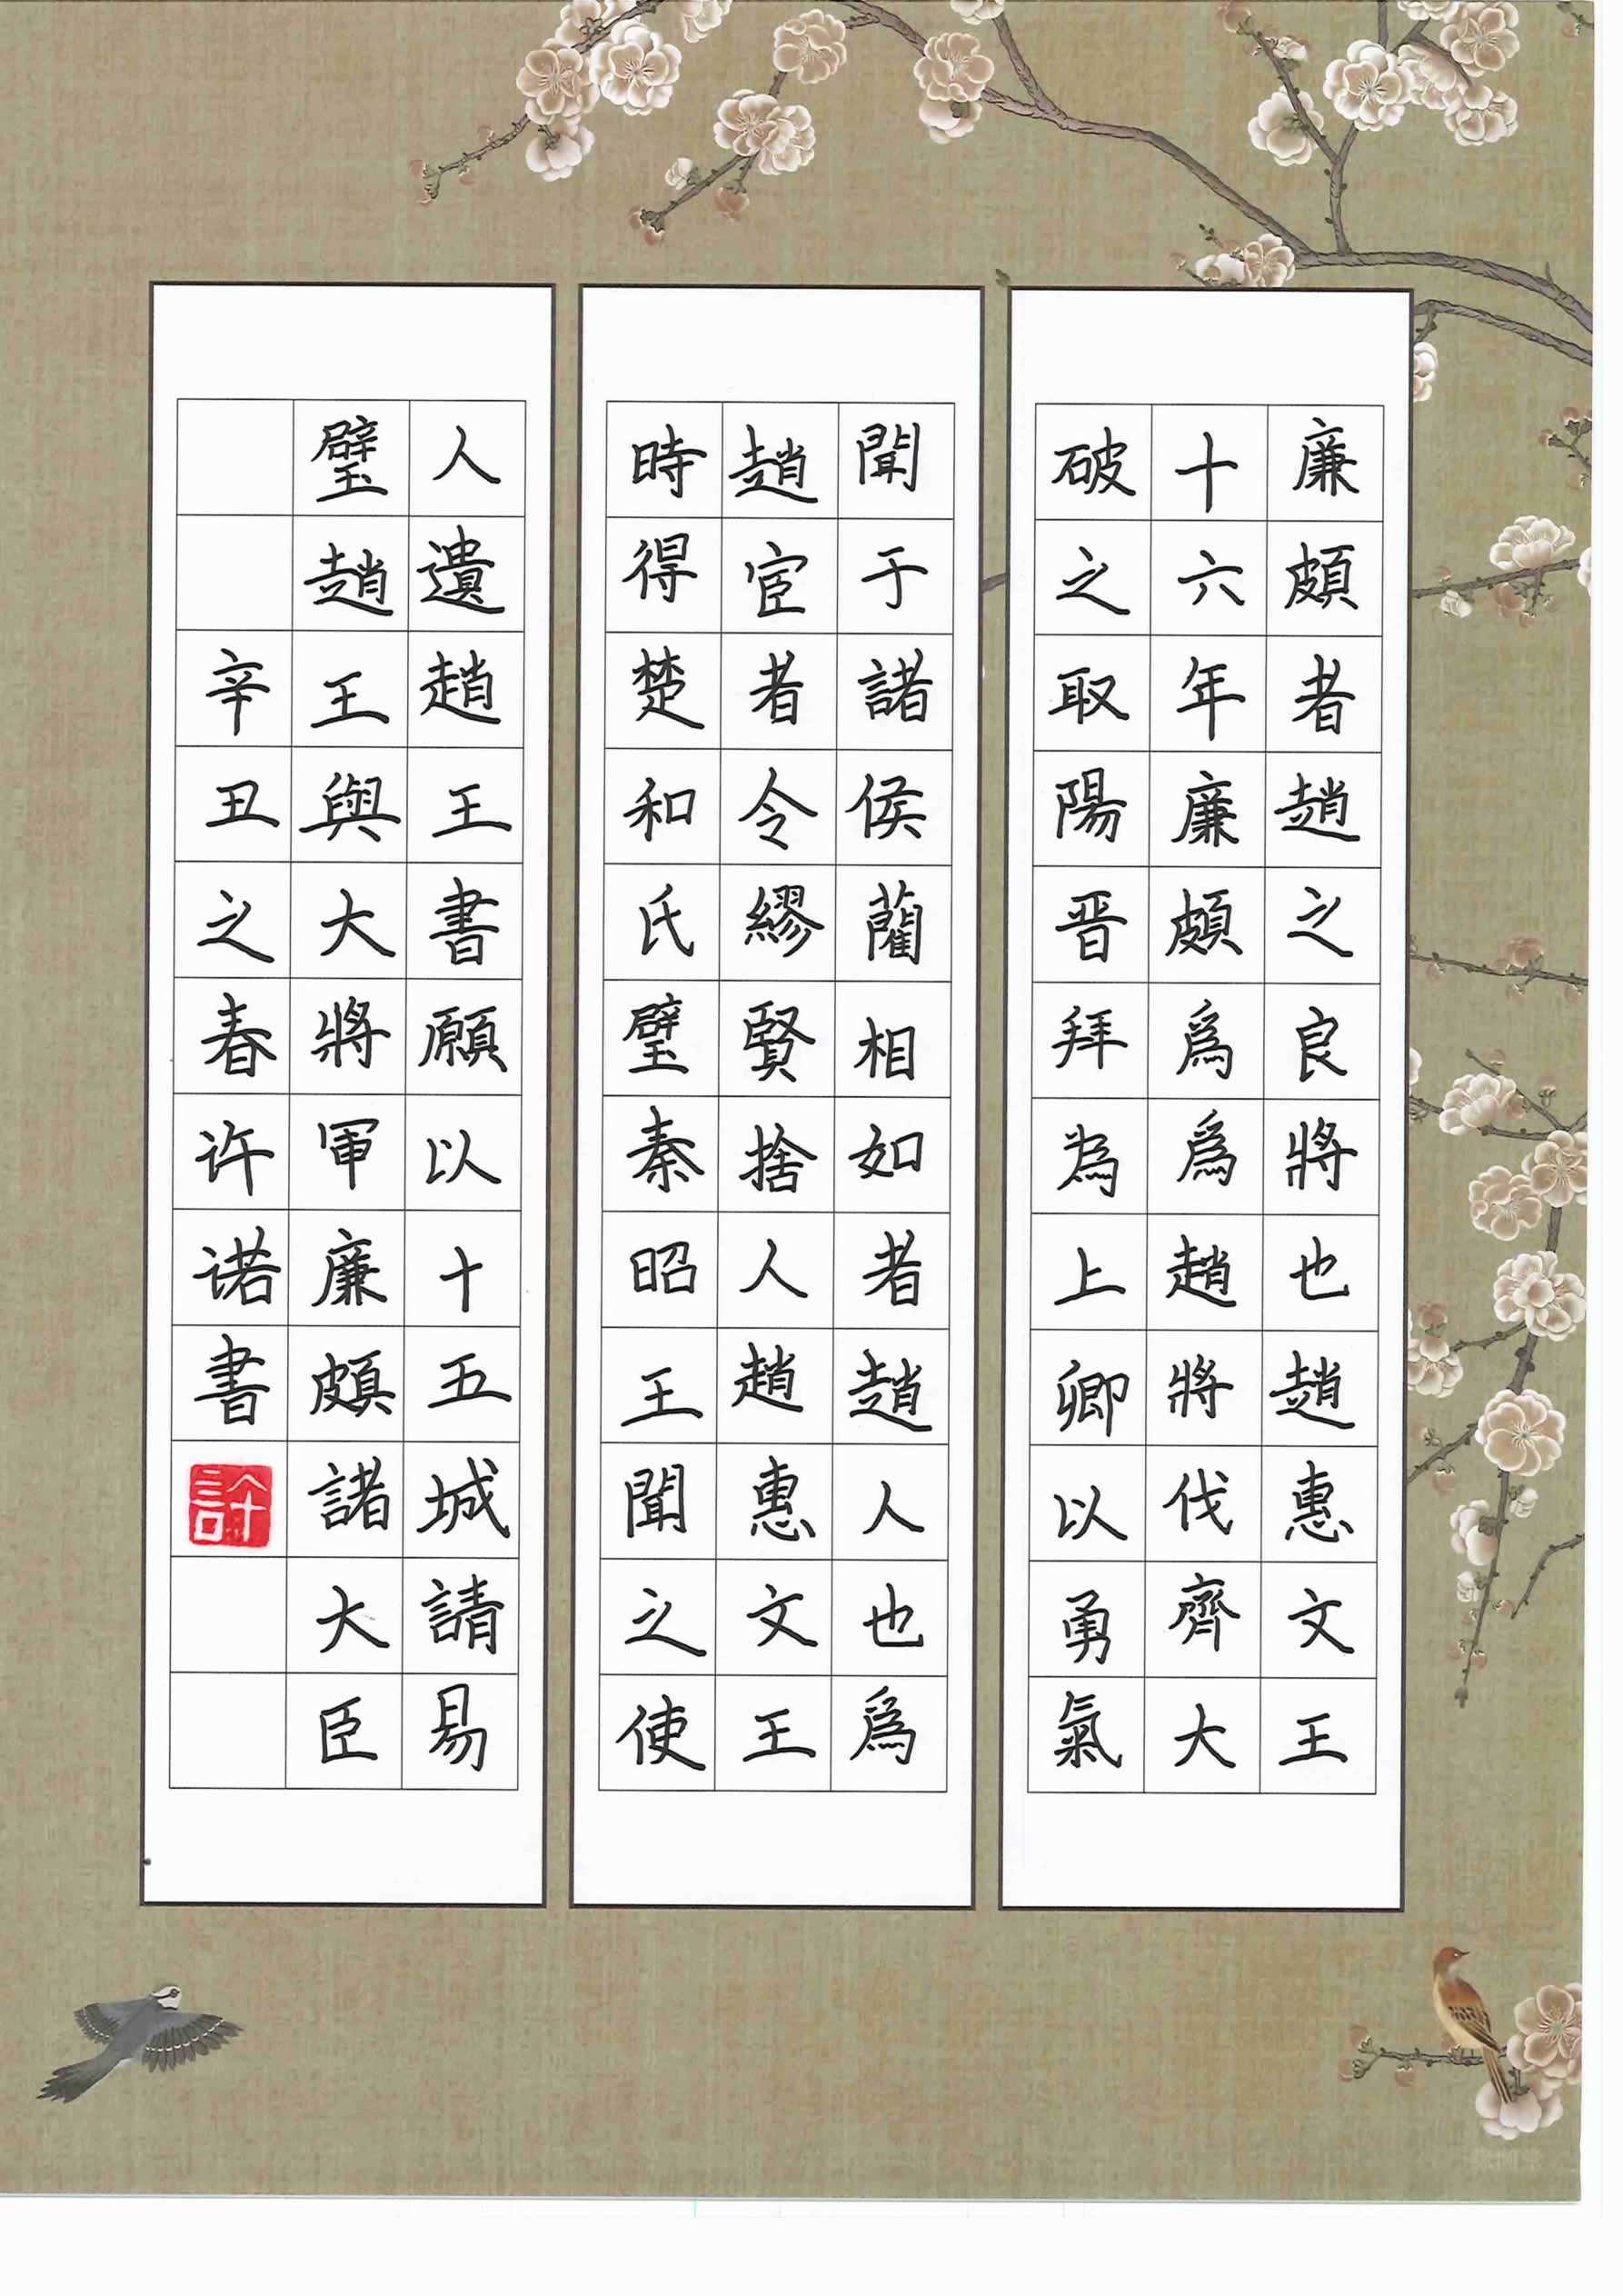 廉頗者趙之良將也趙惠文王
十六年廉頗爲爲趙將伐齊大
破之取陽晋拜為上卿以勇氣
聞于諸侯藺相如者趙人也爲
趙宦者令繆賢捨人趙惠文王
時得楚和氏璧秦昭王聞之使
人遺趙王書願以十五城請易
璧趙王與大將軍廉頗諸大臣
辛丑之春许诺書
許